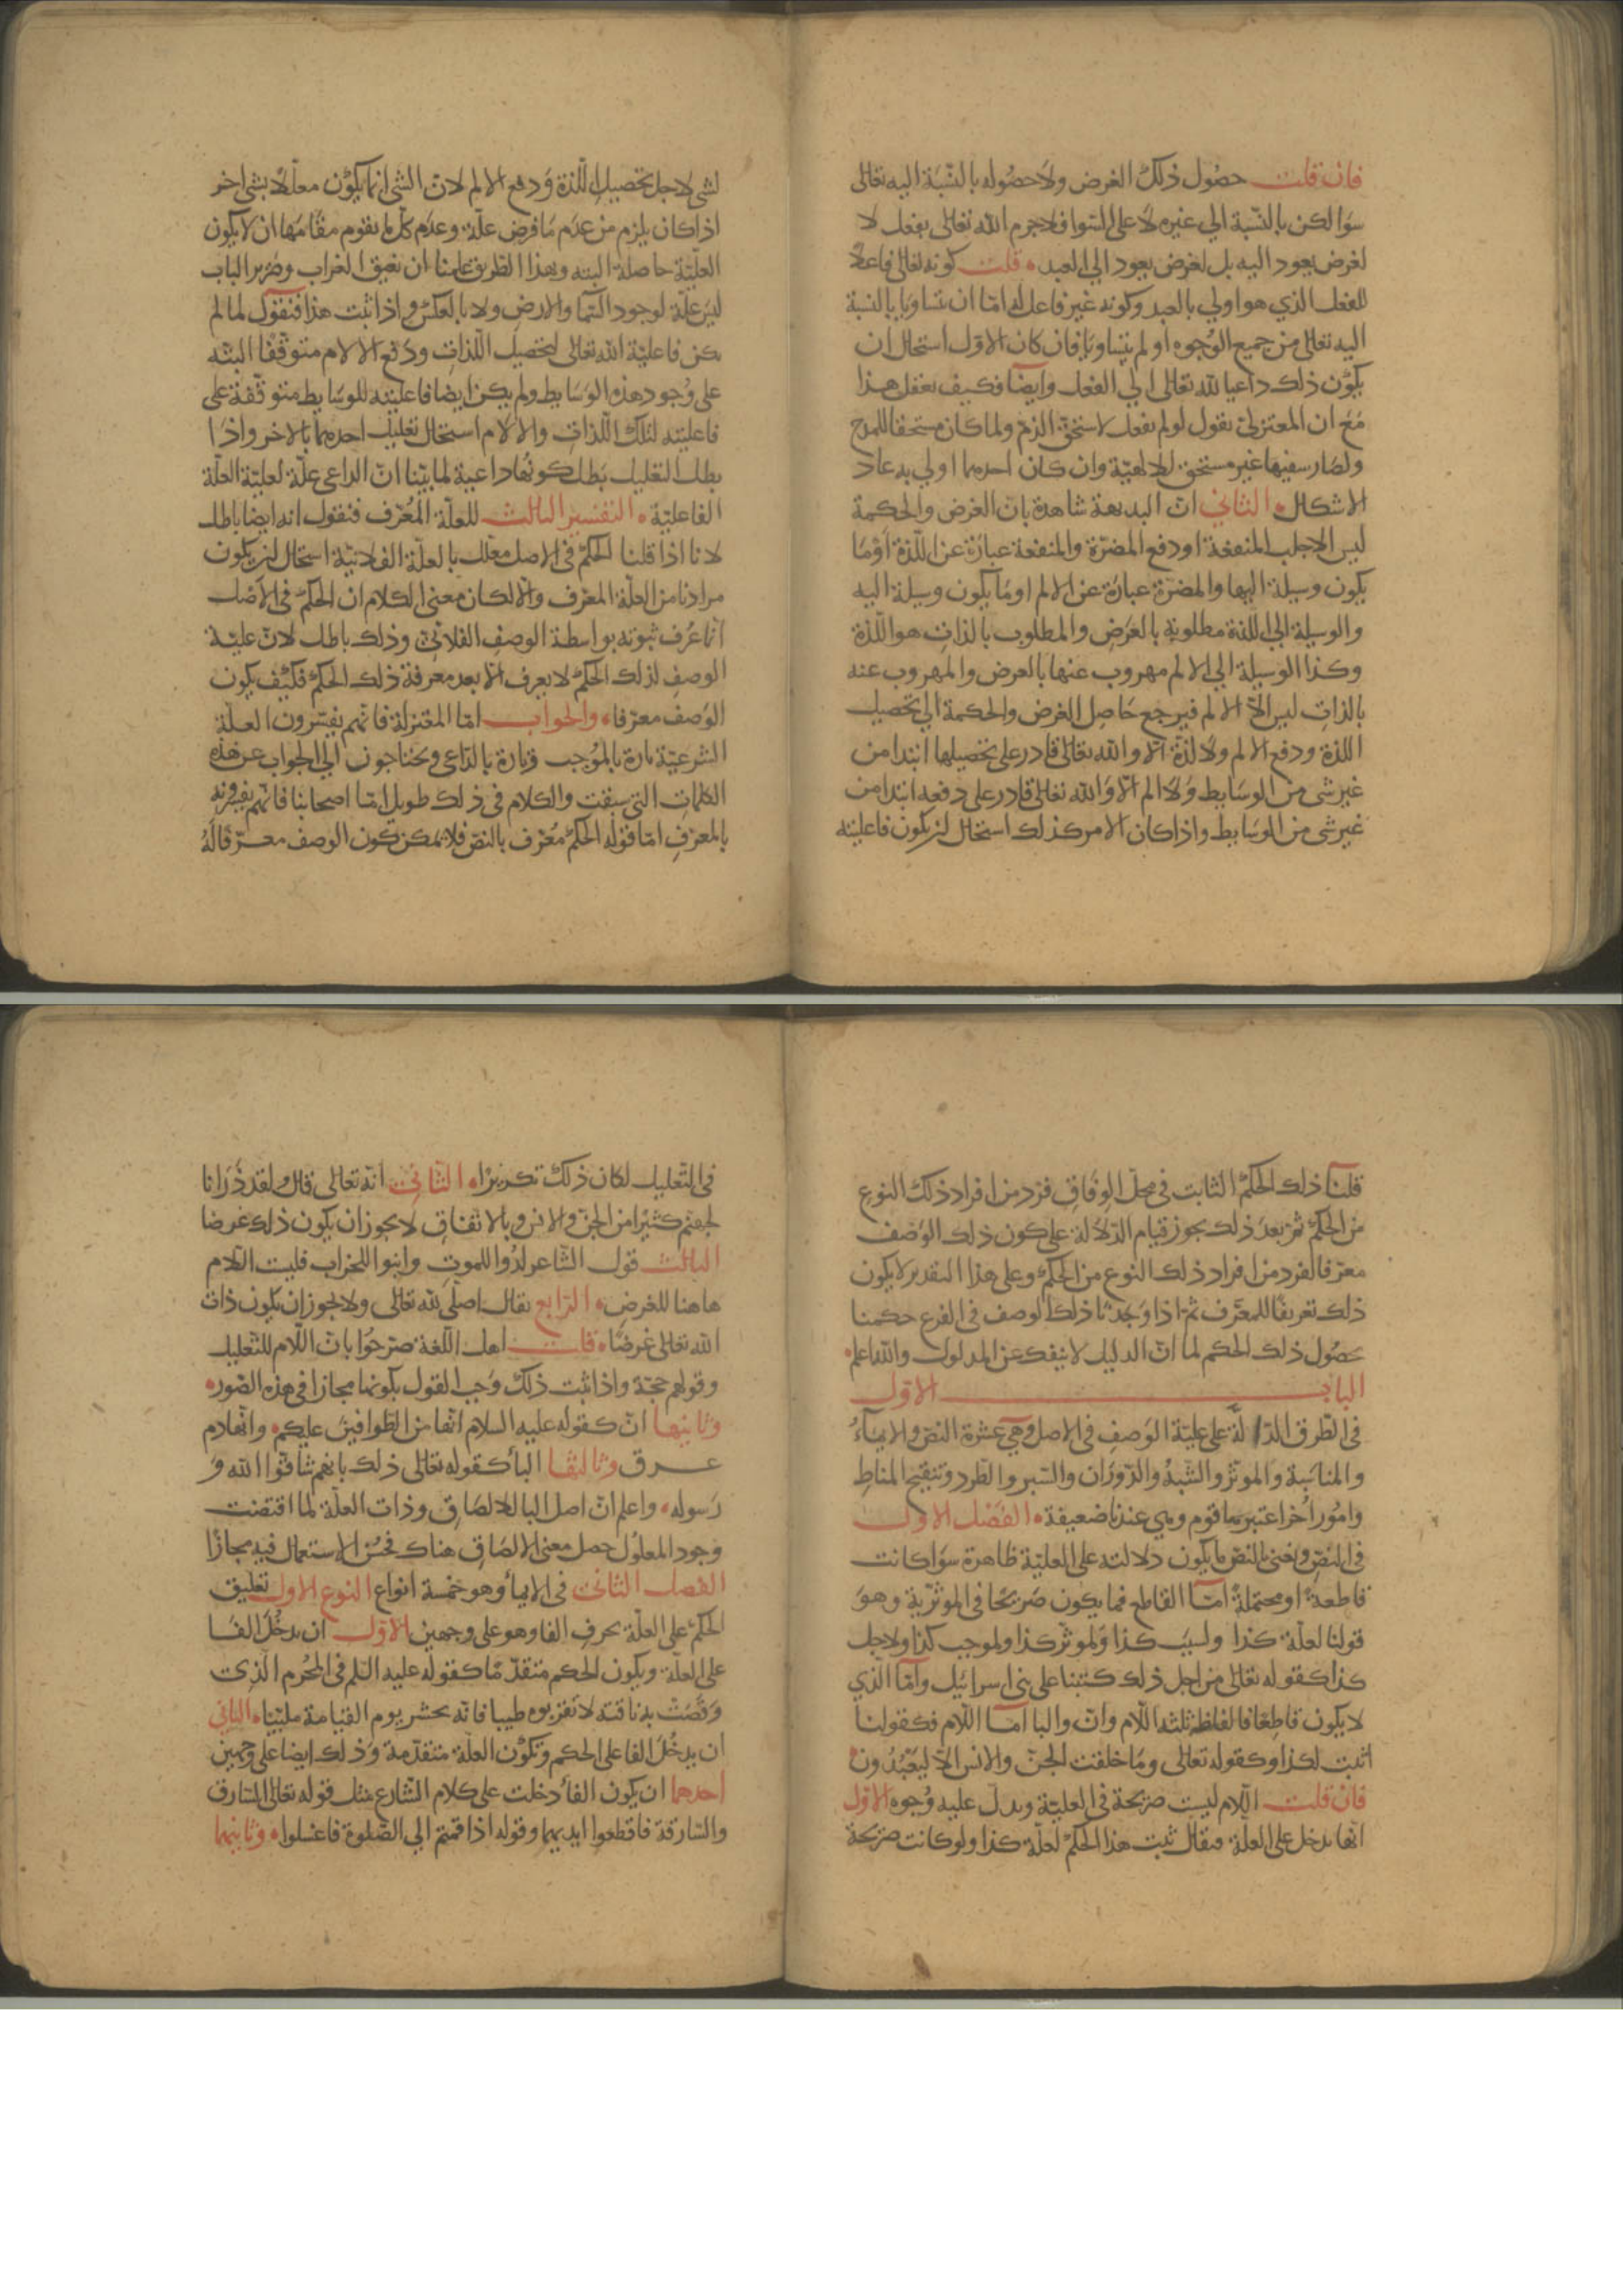 فان قلت حصُول ذلك الغرض ولا حصُوله بالنسّبَة اليه تعالى
سَوا لكن بالنسّبة الي غيره لا على السّوا فلا جرم الله تعالى يفعل لا
لغرض يعود اليه بل لغرض يعود الي العبد ۰ قلت كونه تعالى فاعلًا
للفعل الذي هو اولي بالعبد وكونه غير فاعل له امّا ان تساويَا بالنسبة
اليه تعالى من جميع الوُجوه او لم يتساويَا فان كان الاوّل استحال ان
يكُون ذلك داعيا لله تعالى الي الفعل وايضًا فكيف يعقل هذا
مَعَ ان المعتزلىّ يقول لو لم يفعل لاستحقّ الذمّ ولما كان مستحقا للمدح
ولصَار سفيها غير مستحق للالهيّة وان كان احدهما اولي به عاد
الاشكال ۰ الثاني انّ البديهة شاهدة بانّ الغرض والحكمة
ليس الا جلب المنفعة او دفع المضرّة والمنفعة عبارَة عن اللّذة اوْ مَا
يكون وسيلة اليها والمضرّة عبارَة عن الالم او مَا يكون وسيلة اليه
والوسيلة الي اللذة مطلوبة بالعَرَض والمطلوب بالذاتِ هو اللّذة
وكذا الوسيلة الي الالم مهروب عنها بالعرض والمهروب عنه
بالذاتِ ليس الا الالم فيرجع حَاصِل الغرض والحكمة الي تحصيل
اللذة ودفع الالم ولا لذّة الا والله تعالى قادر على تحصيلها ابتدا من
غير شى من الوسَايط وَلا الم الّا وَالله تعالى قادر على دفعه ابتدا من
غير شى من الوسَايط واذا كان الامر كذلك استحال ان يكون فاعليته
لشى لاجل تحصيل اللّذة وَدفع الالم لانّ الشى انما يكُون معلّلًا بشى اخر
اذا كان يلزم من عدَم مَا فرض علّة وعدَم كل ما يقوم مقَامَها ان لا يكون
العليّة حاصلة البته وبهذا الطّريق علمنا ان نعيق الغراب وصَرير الباب
ليسَ علّة لوجود السّما والارض ولا بالعكس واذا ثبت هذا فنقول لما لم
يكن فاعليّة الله تعالى لتحصيل اللّذاتِ ودَفع الالام متوقّفا البتّه
على وُجود هذه الوسَايط ولم يكن ايضا فاعليّته للوسَايط متوقّفة على
فاعليّته لتلك اللّذاتِ والالام استحال تعليل احدهما بالاخر واذا
بطل التعليل بَطل كونُها داعية لما بيّنا انّ الداعى علّة لعليّة العلّة
الفاعليّة ۰ التفسير الثالث للعلّة المُعرّف فنقول انه ايضا باطل
لانا اذا قلنا الحكم فى الاصل معلّل بالعلّة الفلانيّة استحال ان يكون
مرادنا من العلّة المعرّف والّا لكان معنى الكلام ان الحكم فى الاَصل
انما عُرف ثبوته بواسطة الوصفِ الفلانىّ وذلك باطل لانّ عليّة
الوصفِ لذلك الحكم لا يعرف الّا بعد معرفة ذلك الحكم فكيْف يكون
الوَصف معرّفا ۰ والجواب امّا المعتزلة فانّهم يفسّرون العلّة
الشرعيّة تارة بالمُوجب وتارة بالدّاعى ويحتاجون الي الجواب عن هذه
الكلماتِ التي سبقت والكلام فى ذلك طويل امّا اصحابنا فانّهم يفسّرونه
بالمعرّفِ امّا قوله الحكم مُعرّف بالنصّ فلا يمكن كون الوصف معرّفا لهُ
قلنا ذلك الحكم الثابت فى محلّ الوِفَاق فرد من افراد ذلك النوعِ
من الحكم ثم بعدَ ذلك يجوز قيام الدّلالة على كون ذلك الوَصْف
معرّفا لفرد من افراد ذلك النوع من الحكم وعلى هذا التقدير لا يكون
ذلك تعريفًا للمعرَّف ثمّ اذا وَجدْنا ذلك الوصف فى الفرع حكمنا
بحصُول ذلك الحكم لما انّ الدليل لا ينفك عن المدلول والله اعلم ۰
الباب الاوّل
فى الطّرق الدّالّة على عليّة الوَصفِ فى الاصل وهى عشرة النصّ والايماءُ
والمناسَبة وَالموثّر والشّبهُ والدّوَرَان والسّبر والطّرد وتنقيح المناطِ
وامُور اُخر اعتبرها قوم وهي عندنا ضعيفة ۰ الفَصْل الاول
فى النصّ ونعنى بالنصّ ما يكون دلالته على العليّة ظاهرة سوَا كانت
قاطعةً او محتملةً امّا القاطع فما يكون صَريحًا فى الموثّريّة وهوَ
قولنا لعلّة كذا ولسبَب كذا وَلموثّر كذا ولموجب كذا ولاجل
كذا كقوله تعالى من اجل ذلك كتبنا على بنى اسرائيل وامّا الّذي
لا يكون قاطعًا فالفاظه ثلثه اللّام وانّ والبا امّا اللّام فكقولنا
اثبت لكذا وكقوله تعالى ومَا خلقت الجنّ والانس الّا ليَعْبُدُون ۰
فان قلت اللّام ليست صَريحة فى العليّة ويدلّ عليه وُجوه الاوّل
انّها تدخل على العلّة فيقال ثبت هذا الحكم لعلّة كذا ولو كانت صَريحة
فى التّعليل لكان ذلك تكريْرًا ۰ الثّانىّ انّه تعالى قال ولقد ذَرَانا
لجهنّم كثيرًا من الجنّ والانس وبالاتفاقِ لا يجوز ان يكون ذلك غرضا
الثالث قول الشّاعر لدُوا للموتِ وابنوا للخراب فليت اللّام
هاهنا للغرضِ ۰ الرّابع يقال اصلّى لله تعالى ولا يجوز ان يكون ذات
الله تعالى غرضًا ۰ قلت اهل اللّغة صرّحُوا بانّ اللّام للتّعليل
وقولهم حجّة واذا ثبت ذلك وَجب القول بكونها مجازا فى هذه الصّور ۰
وثانيها انّ كقوله عليه السلام انّها من الطّوافينَ عليكم ۰ وانّه دم
عرق وثالثها البأ كقوله تعالى ذلك بانهم شاقّوا الله وَ
رَسوله ۰ واعلم انّ اصل البا للالصَاقِ وذات العلّة لما اقتضت
وجود المعلُول حصل معنى الالصَاقِ هناك فحسُن الاستعمال فيه مجازًا
الفصل الثانىّ فى الايمأ وهو خمسة انواع النوع الاول تعليق
الحكم على العلّة بحرفِ الفا وهو على وجهين الاوّل ان يدخُلَ الفَا
على العلّة ويكون الحكم متقدّمًا كقوله عليه السّلم فى المُحْرم الّذى
وَقَصَتْ به ناقته لا تقرّبوه طيبا فانّه يحشر يوم القيامة ملبّيًا ۰ الثانى
ان يدخُلَ الفا على الحكم وتكُوْن العلّة متقدّمة وَذلك ايضا على وجهين
احدهما ان يكون الفأ دخلت على كلام الشّارع مثل قوله تعالى السّارق
والسّارقة فاقطعوا ايديهما وقوله اذا قمتم الي الصّلوة فاغسلوا ۰ وثانيهما